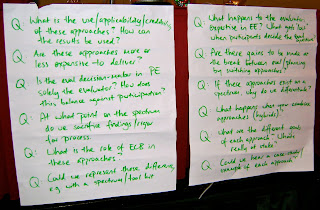 Q: What is the use/applicability/credibility
of these approaches? How can
the results be used?
Q: Are these approaches more or
less expensive to deliver?
Q: Is the eval decision-center in PE
solely the evaluator? How does
this balance against participation?
Q: At what point on the spectrum
do we sacrifice findings/rigor
for process.
Q: What is the role of ECB in
these approaches?
Q: Could we represent these differently,
eg with a spectrum/tool like
Q: What happens to the evaluator
expertise in EE? What
when participants decide the
Q: Are there gains to be made at
the break between eval/planning
by switching approaches?
Q: If these approaches exist on a
spectrum why do we differentiate?
Q: What happens when you combine
approaches (hybrids)?
Q: What are the different goals
of each approach? What's
really at stake?
Q: Could we hear a case study/
example of each approach?